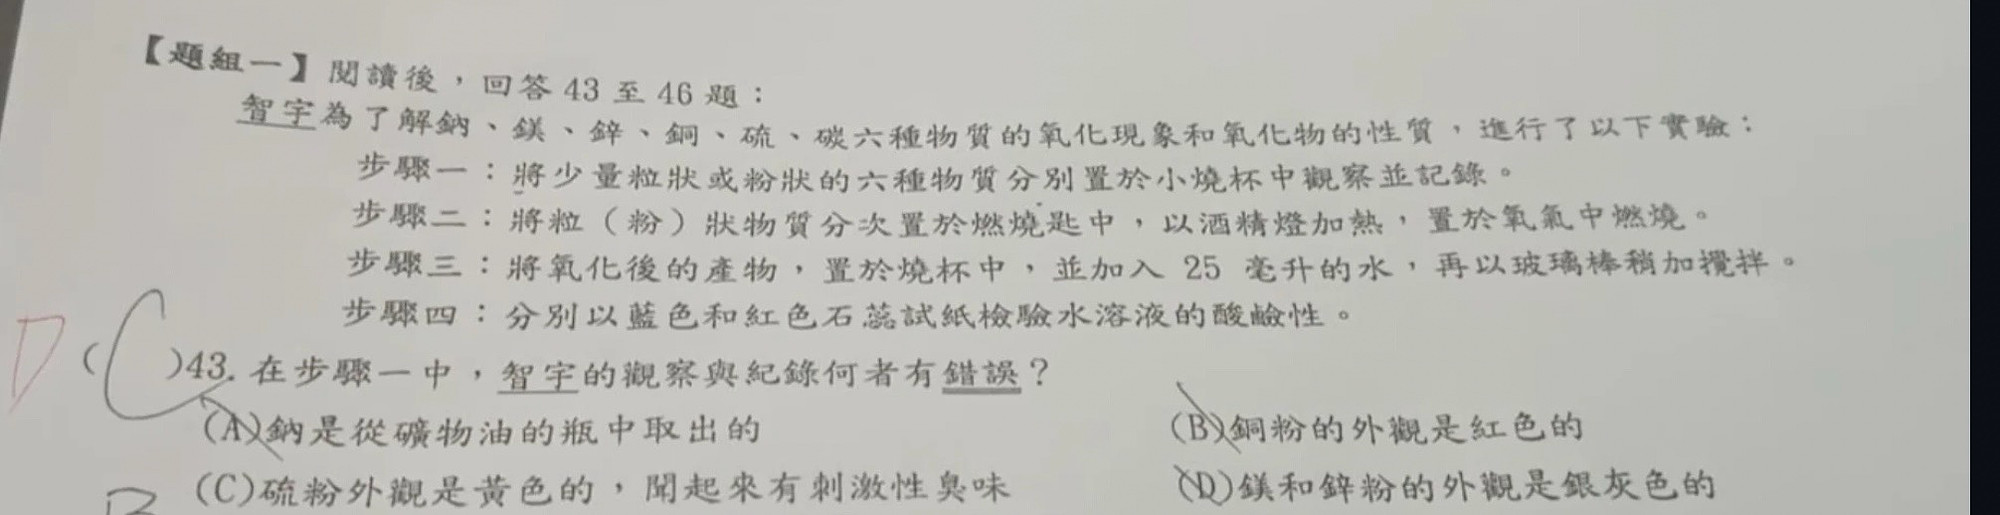 【題組一】閱讀後，回答 43 至 46 題：
智宇為了解鈉、鎂、鋅、銅、硫、碳六種物質的氧化現象和氧化物的性質，進行了以下實驗：
步驟一：將少量粒狀或粉狀的六種物質分別置於小燒杯中觀察並記錄。
步驟二：將粒（粉）狀物質分次置於燃燒匙中，以酒精燈加熱，置於氧氣中燃燒。
步驟三：將氧化後的產物，置於燒杯中，並加入 25 毫升的水，再以玻璃棒稍加攪拌。
步驟四：分別以藍色和紅色石蕊試紙檢驗水溶液的酸鹼性。
D ( C )43. 在步驟一中，智宇的觀察與紀錄何者有錯誤？
(A)鈉是從礦物油的瓶中取出的 (B)銅粉的外觀是紅色的
(C)硫粉外觀是黃色的，聞起來有刺激性臭味 (D)鎂和鋅粉的外觀是銀灰色的